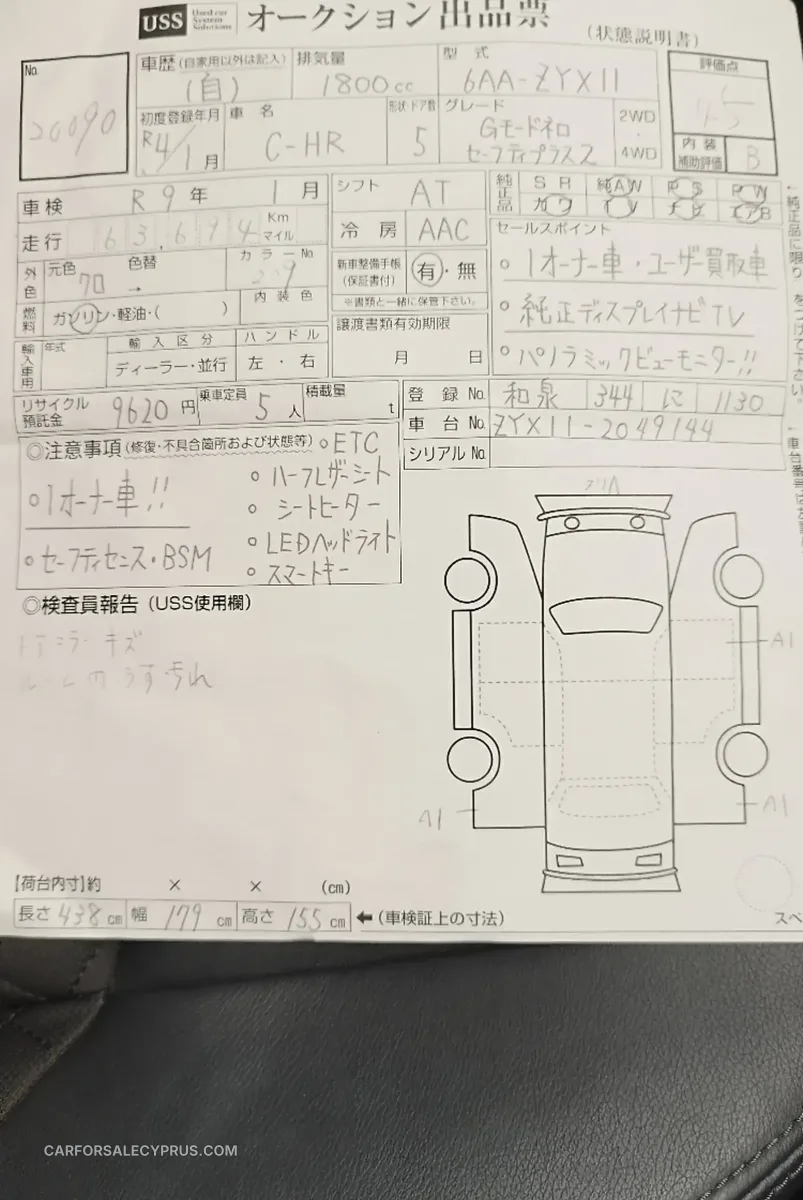 USS Used car System Solutions オークション 出品票 (状態説明書)
No. 20090
車歴 (自家用以外は記入) (自)
排気量 1800cc
型式 6AA-ZYX11
評価点 4.5
初度登録年月 R4/1月
車名 C-HR
形状・ドア数 5
グレード Gモードネロ セーフティプラス2
2WD・4WD
内装補助評価 B
車検 R9年 1月
シフト AT
純正品 SR 純AW PS PW
カワ TV ナビ エアB
走行 63,694 Km マイル
冷房 AAC
セールスポイント
○1オーナー車・ユーザー買取車
○純正ディスプレイナビTV
○パノラミックビューモニター!!
外色 元色 70 → 色替
カラーNo. 209
内装色
新車整備手帳 (保証書付) 有・無
※書類と一緒に保管下さい。
燃料 ガソリン・軽油・( )
輸入車用 年式
輸入区分 ディーラー・並行
ハンドル 左・右
譲渡書類有効期限 月 日
リサイクル預託金 9620円
乗車定員 5人
積載量 t
登録No. 和泉 344 に 1130
車台No. ZYX11-2049144
シリアルNo.
◎注意事項 (修復・不具合箇所および状態等)
○1オーナー車!!
○セーフティセンス・BSM
○ETC
○ハーフレザーシート
○シートヒーター
○LEDヘッドライト
○スマートキー
◎検査員報告 (USS使用欄)
ドアミラーキズ
ルームのうす汚れ
A1
A1
A1
【荷台内寸】約 × × (cm)
長さ 438cm 幅 179cm 高さ 155cm ←(車検証上の寸法)
スペ
CARFORSALECYPRUS.COM